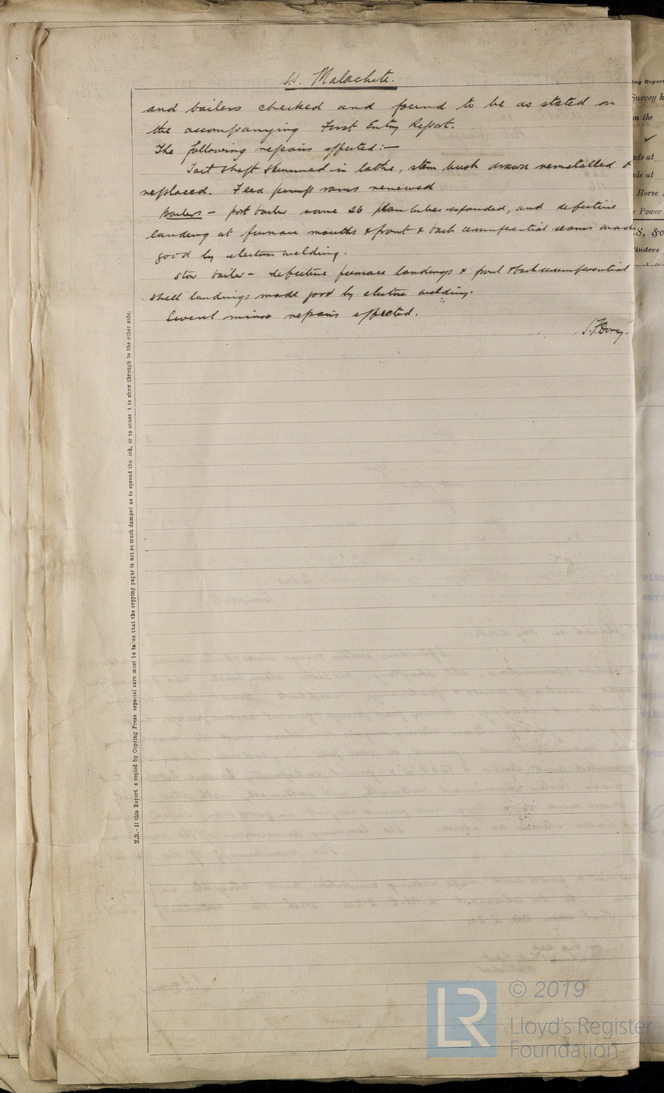 S.S. Malachite.
and boilers checked and found to be as stated on
the accompanying First Entry Report.
The following repairs effected:—
Tail shaft skimmed in lathe, stern bush drawn remetalled &
replaced. Feed pump rams renewed
Boilers — port boiler some 26 plain tubes expanded, and defective
landing at furnace mouths & front & back circumferential seams made
good by electric welding.
Star boiler — defective furnace landings & front & back circumferential
shell landings made good by electric welding.
Several minor repairs effected.
S.F. Dorey.
N.B.—If this Report is copied by Copying Press especial care must be taken that the copying paper is not so much damped as to spread the ink, or to cause it to show through to the other side.
Survey h
on the
ade at
ade at
Horse
Power
S, &c
linders
LR
© 2019
Lloyd's Register
Foundation